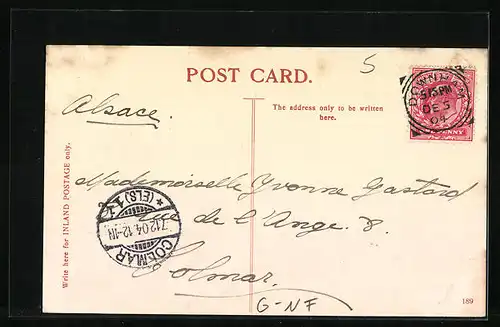 5
POST CARD.
Alsace.
The address only to be written
here.
Write here for INLAND POSTAGE only.
DOWNHAM
5 15 PM
DE 5
04
PENNY
Mademoiselle Yvonne Gastard
rue de l'Ange. 8.
Colmar.
COLMAR
7.12.04.12-1N
*(ELS)1*
G-NF
189